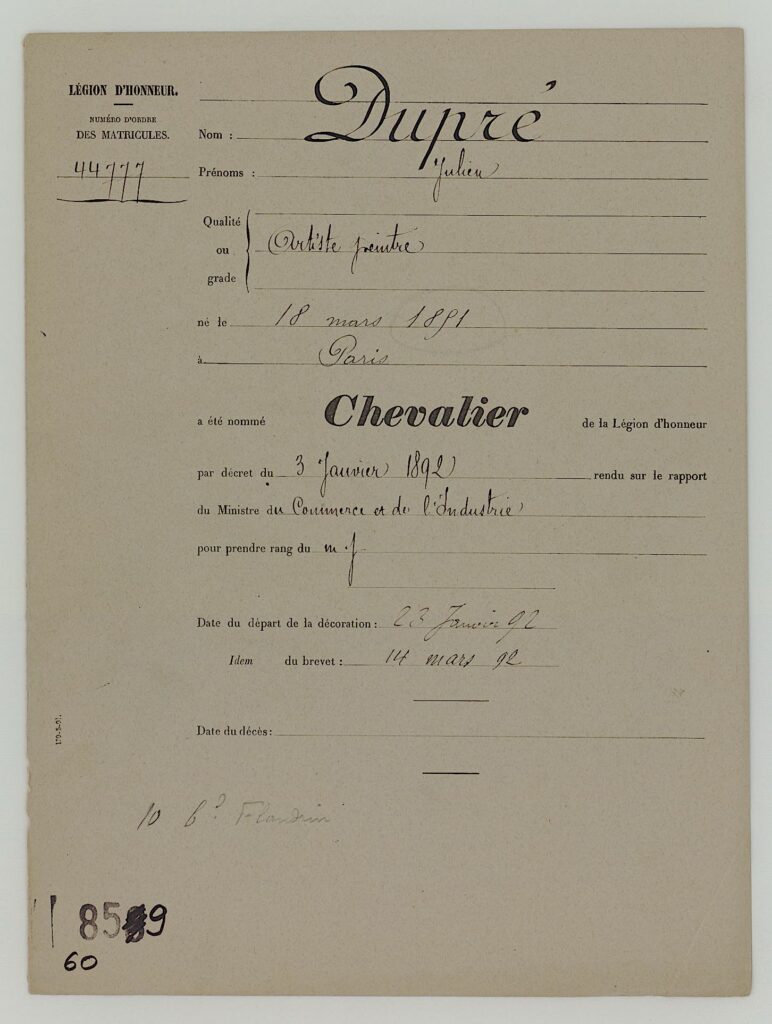 LÉGION D'HONNEUR.
NUMÉRO D'ORDRE
DES MATRICULES.
44777
Nom : Dupré
Prénoms : Julien
Qualité
ou
grade
Artiste peintre
né le 18 mars 1851
à Paris
a été nommé Chevalier de la Légion d'honneur
par décret du 3 Janvier 1892 rendu sur le rapport
du Ministre du Commerce et de l'Industrie
pour prendre rang du m J
Date du départ de la décoration : 23 Janvier 92
Idem du brevet : 14 mars 92
Date du décès :
10 Bd Flandrin
859
60